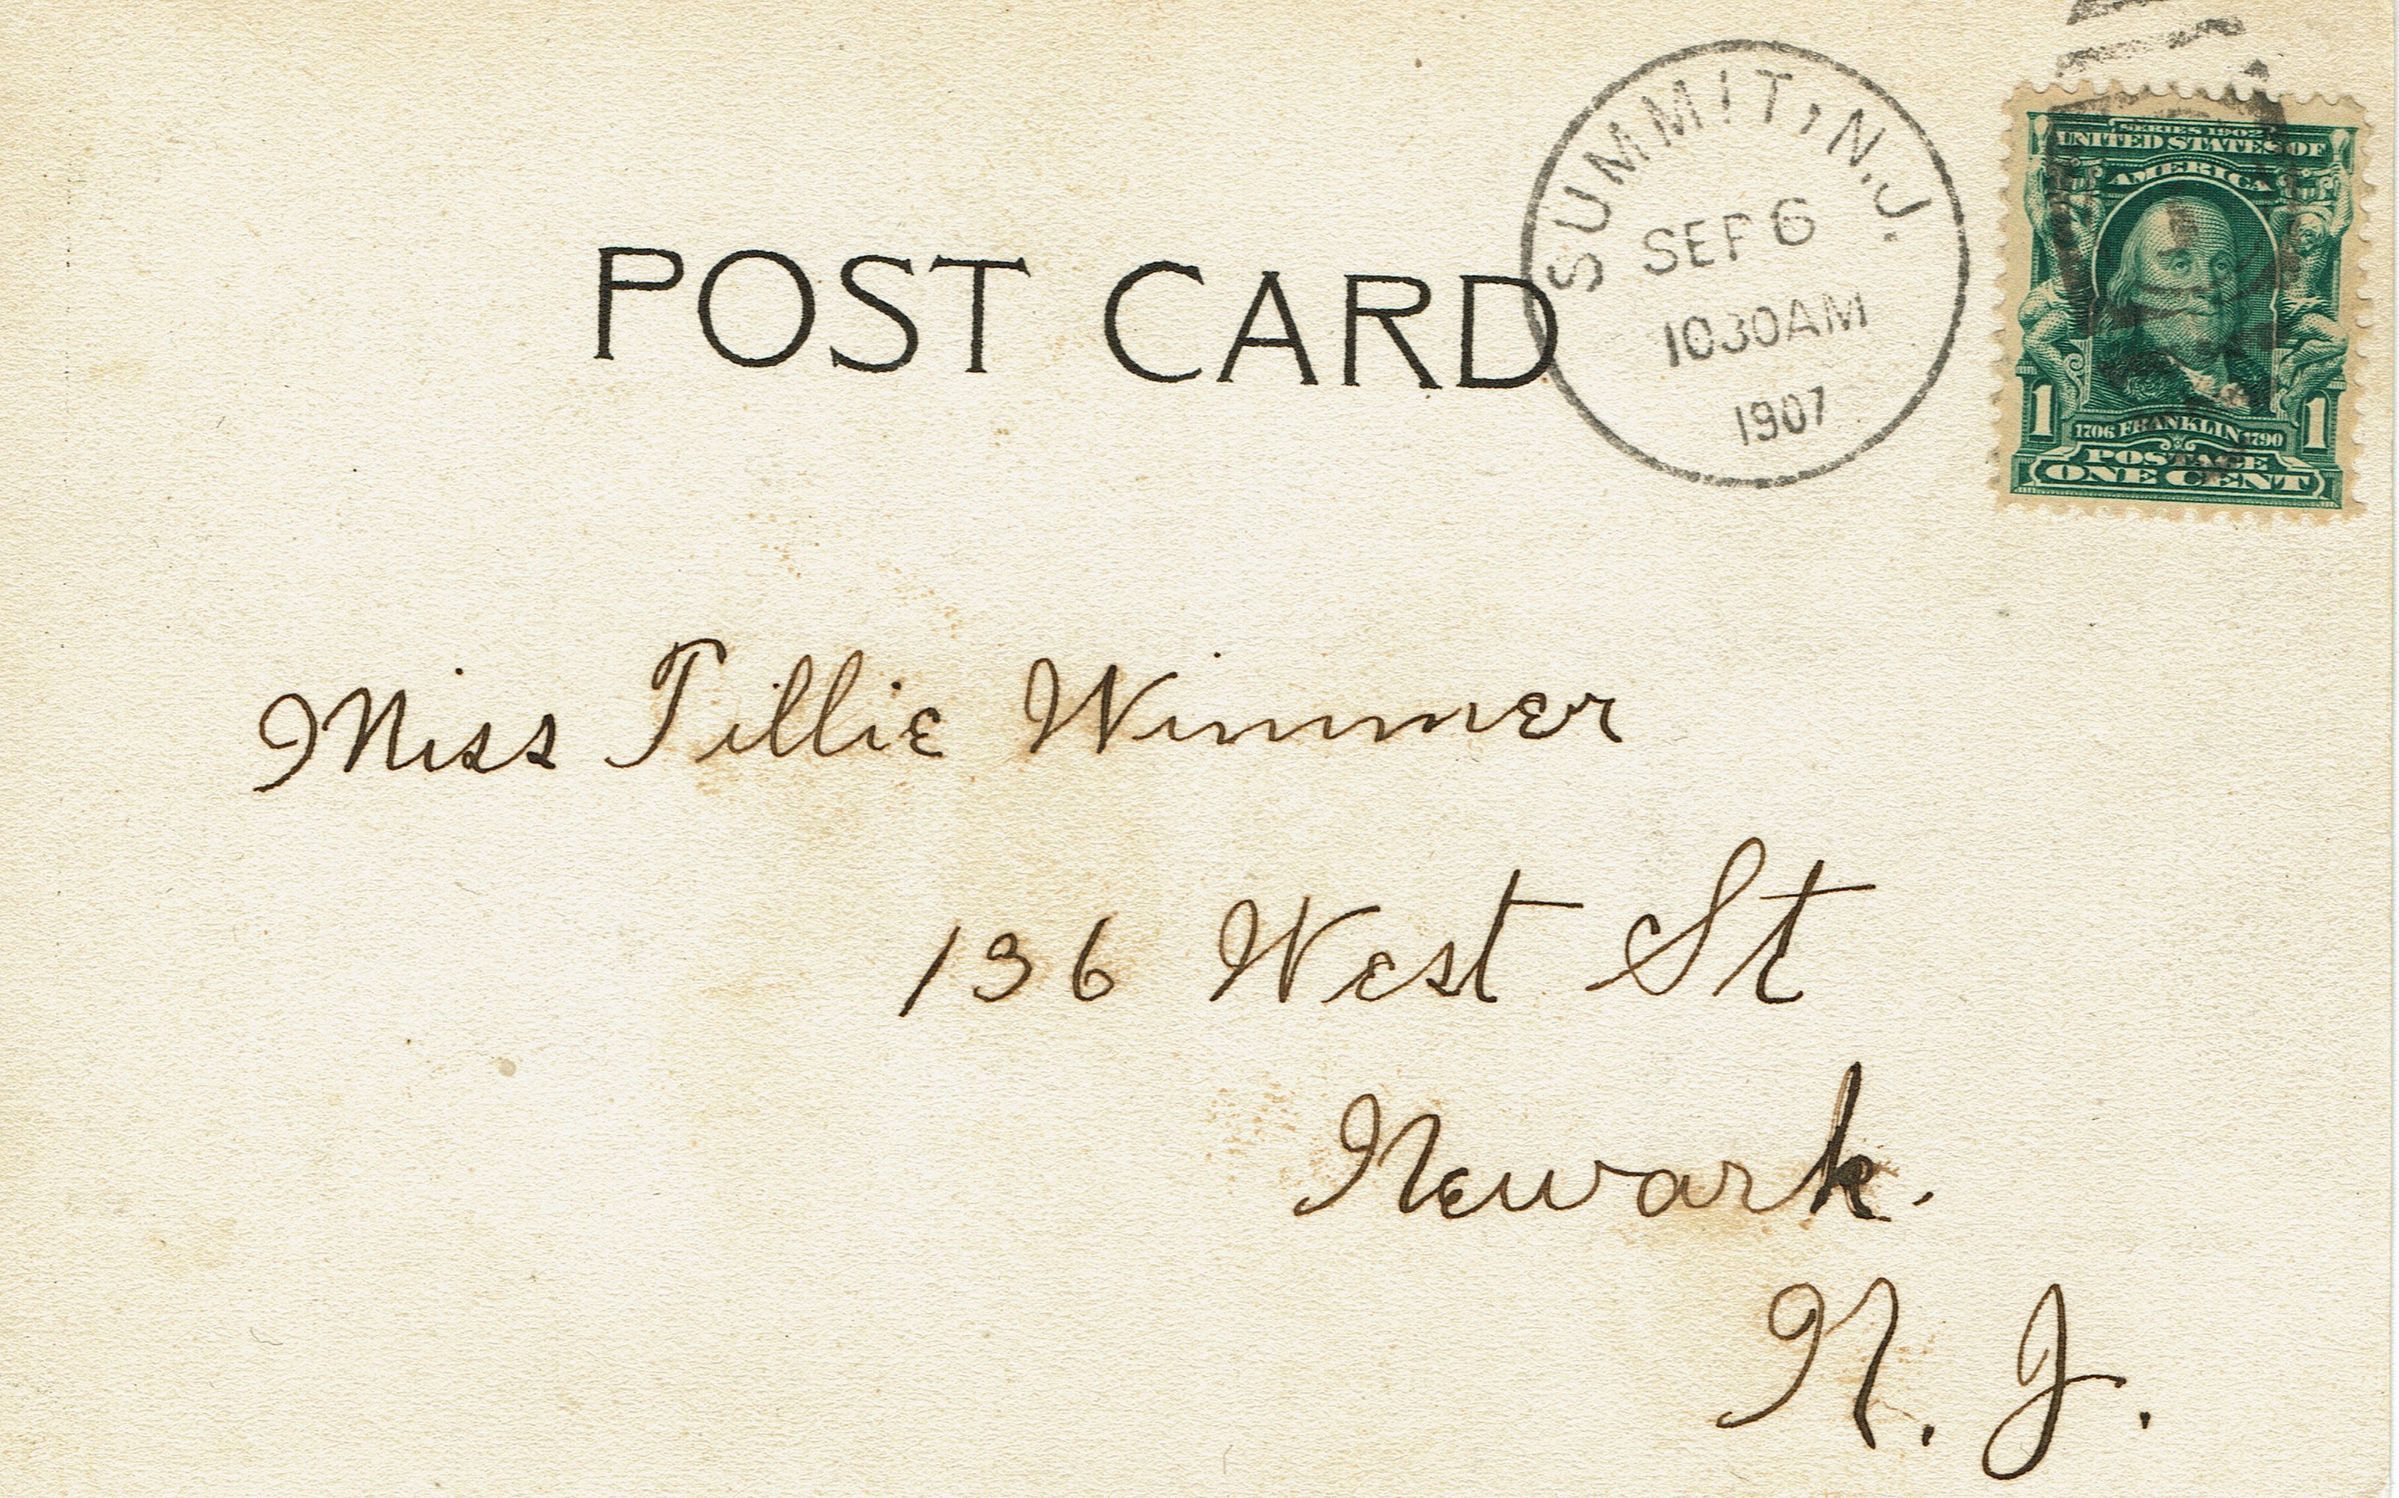 POST CARD
SUMMIT, N.J.
SEP 6
1030AM
1907
SERIES 1902
UNITED STATES OF
AMERICA
1 1706 FRANKLIN 1790 1
POSTAGE
ONE CENT
Miss Tillie Wimmer
136 West St
Newark.
N. J.